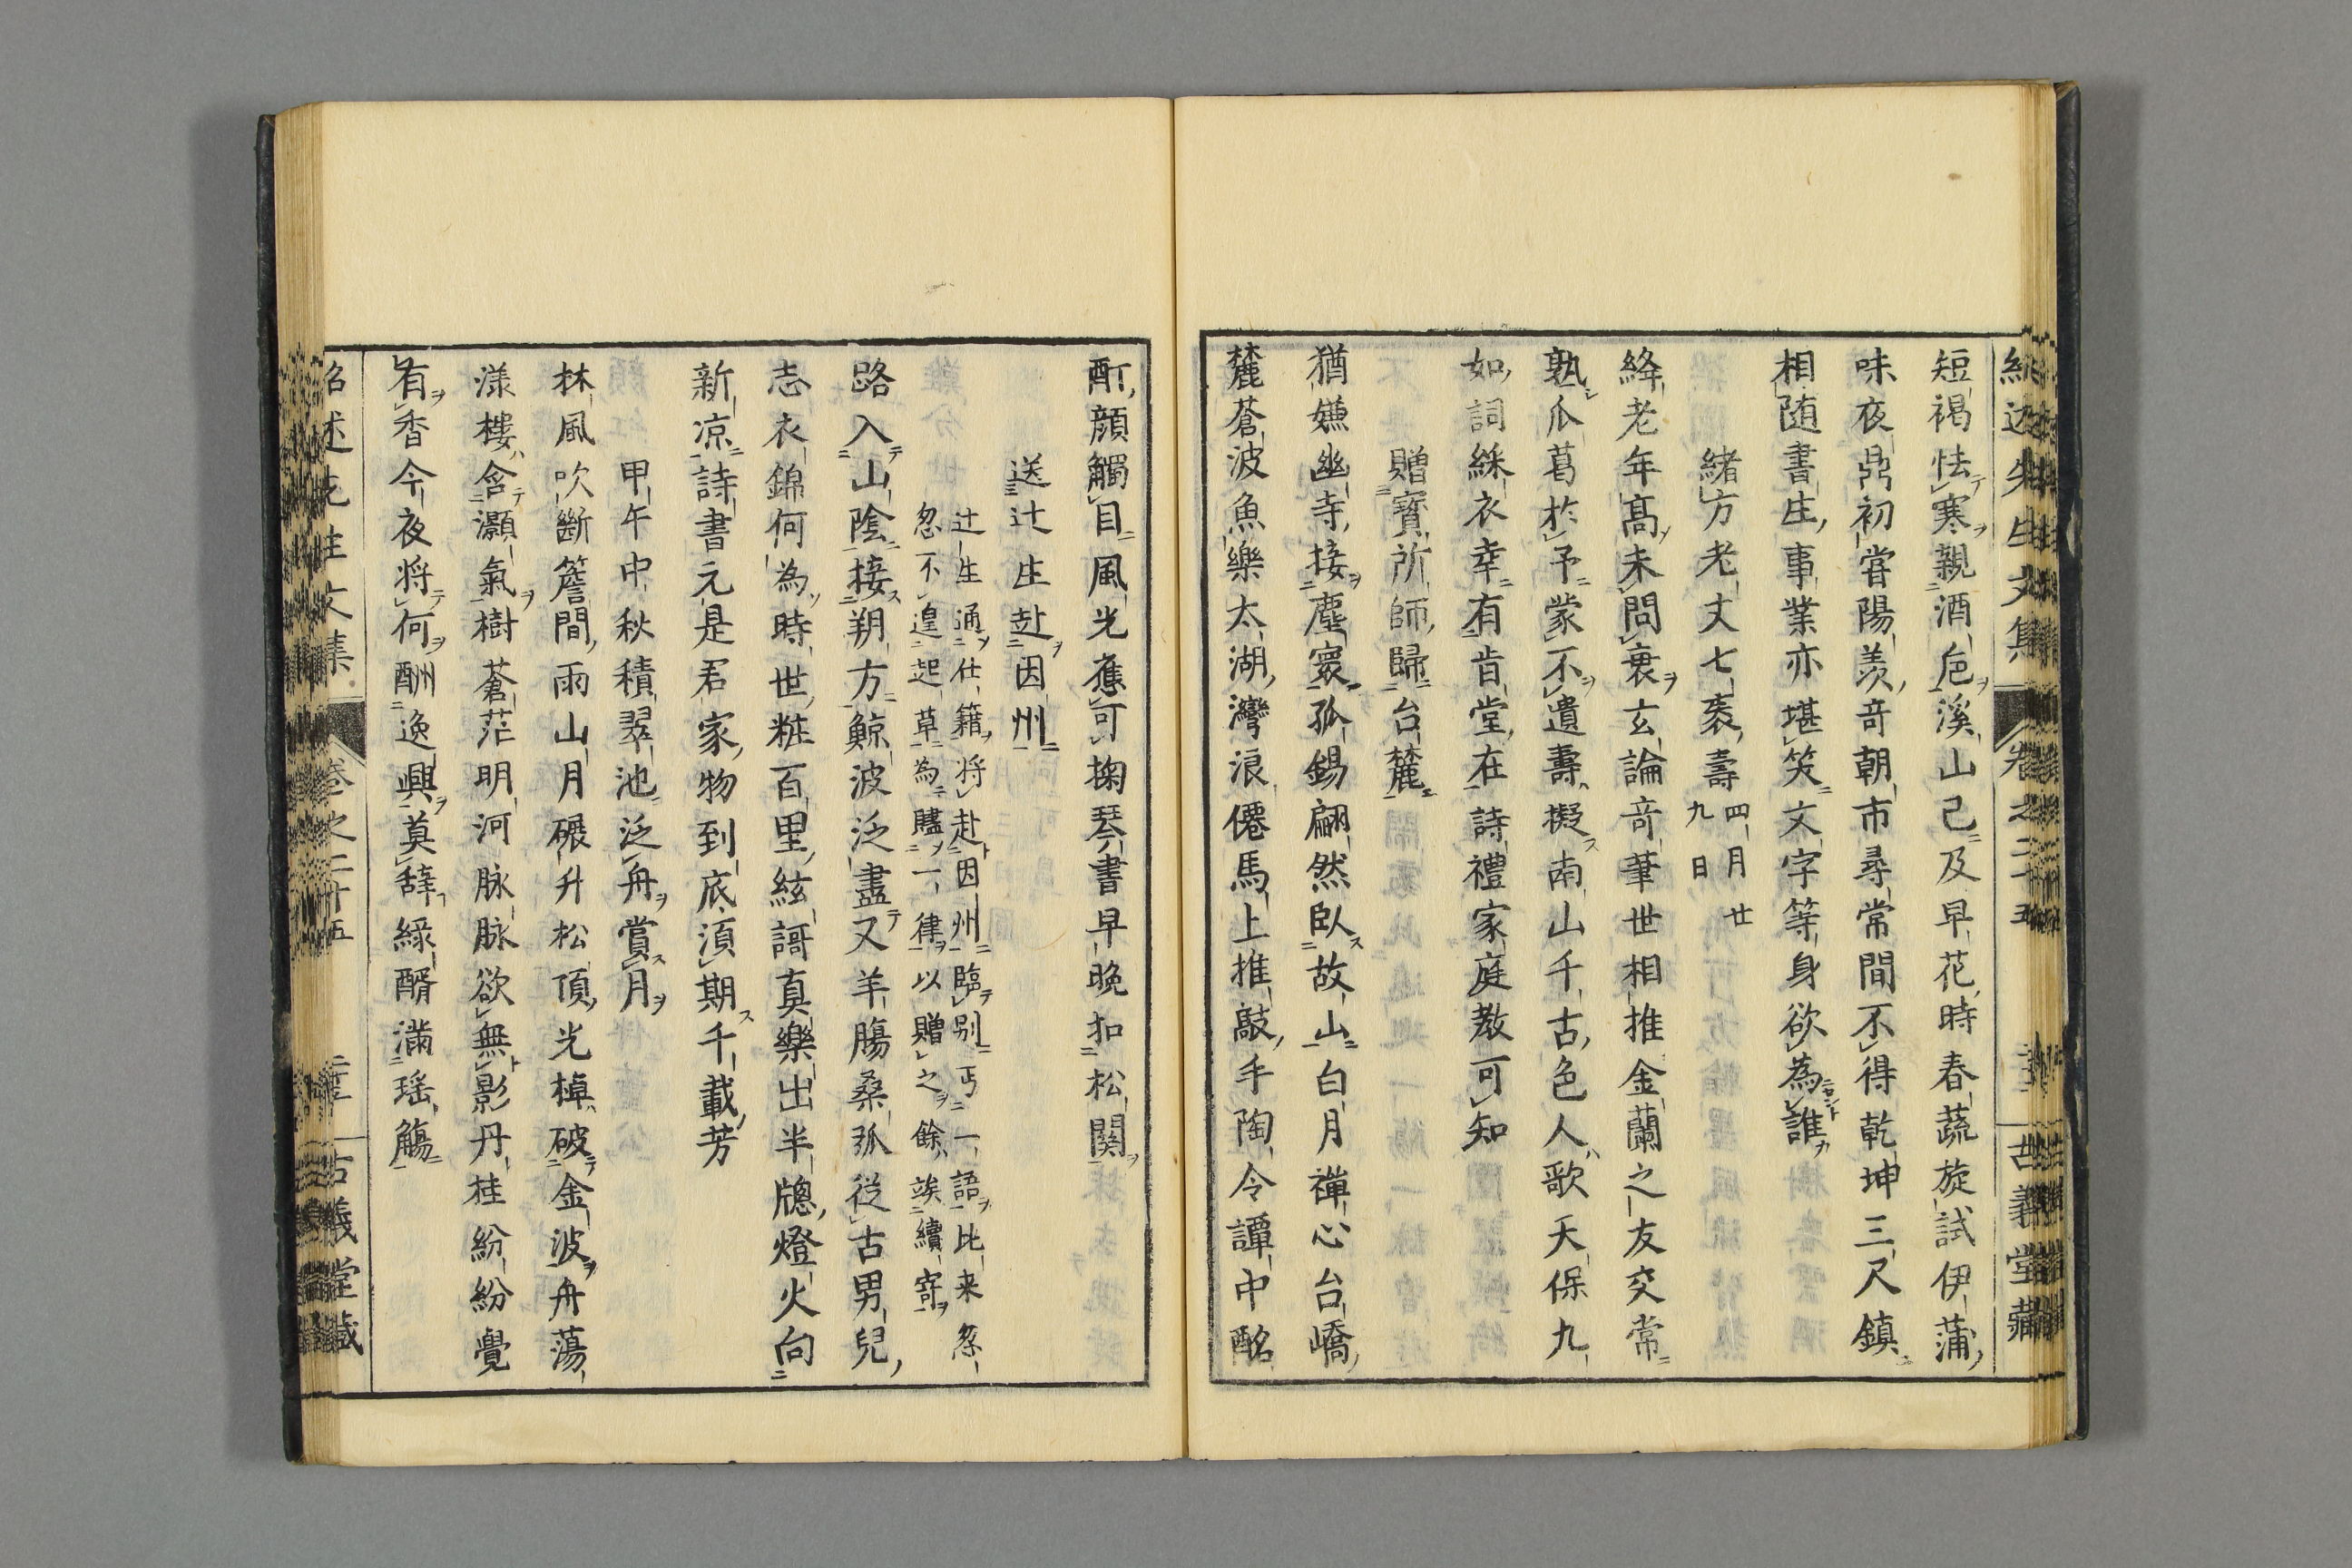 短褐怯寒親酒巵溪山己及早花時春蔬旋試伊蒲
味夜鼎初嘗陽羨竒朝市尋常間不得乾坤三尺鎮
相随書生事業亦堪笑文字等身欲為誰
緒方老丈七袠壽四月廿九日
絳老年高未問衰玄論竒筆世相推金蘭之友交常
熟瓜葛於予蒙不遺壽擬南山千古色人歌天保九
如詞綵衣幸有肯堂在詩禮家庭教可知
贈寳所師歸台麓
猶嫌幽寺接塵寰孤錫翩然臥故山白月禪心台嶠
麓蒼波魚樂太湖灣浪僊馬上推敲手陶令譚中酩
酊顔觸目風光應可掬琴書早晩扣松關
送辻生赴因州
辻生通仕籍将赴因州臨别丐一語比来忽
忽不遑起草為贐一律以贈之餘竢續寄
路入山陰接朔方鯨波泛盡又羊膓桑弧従古男兒
志衣錦何為時世粧百里絃謌真樂出半牕燈火向
新凉詩書元是君家物到底湏期千載芳
甲午中秋積翠池泛舟賞月
林風吹斷簷間雨山月碾升松頂光棹破金波舟蕩
漾樓含灝氣樹蒼茫明河脉脉欲無影丹桂紛紛覺
有香今夜将何酬逸興莫辞緑醑満瑶觴